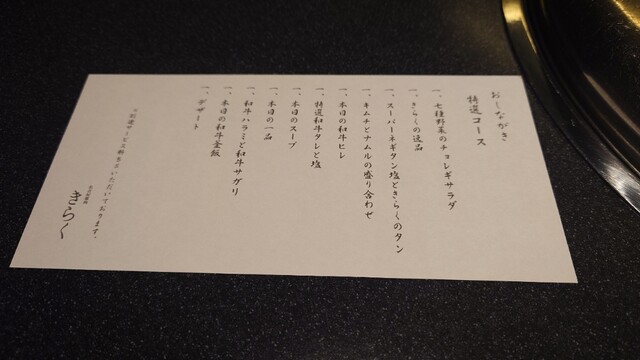 おしながき
特選コース
一、七種野菜のチョレギサラダ
一、きらくの逸品
一、スーパーネギタン塩ときらくのタン
一、キムチとナムルの盛り合わせ
一、本日の和牛ヒレ
一、特選和牛タレと塩
一、本日のスープ
一、本日の一品
一、和牛ハラミと和牛サガリ
一、本日の和牛釜飯
一、デザート
※別途サービス料を頂いただいております。
きらく